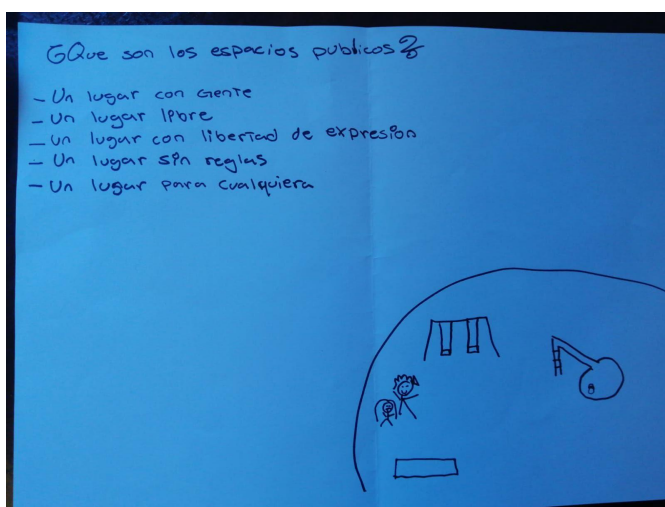 ¿Que son los espacios publicos?
- Un lugar con Gente
- Un lugar libre
- un lugar con libertad de expresión
- Un lugar sin reglas
- Un lugar para cualquiera